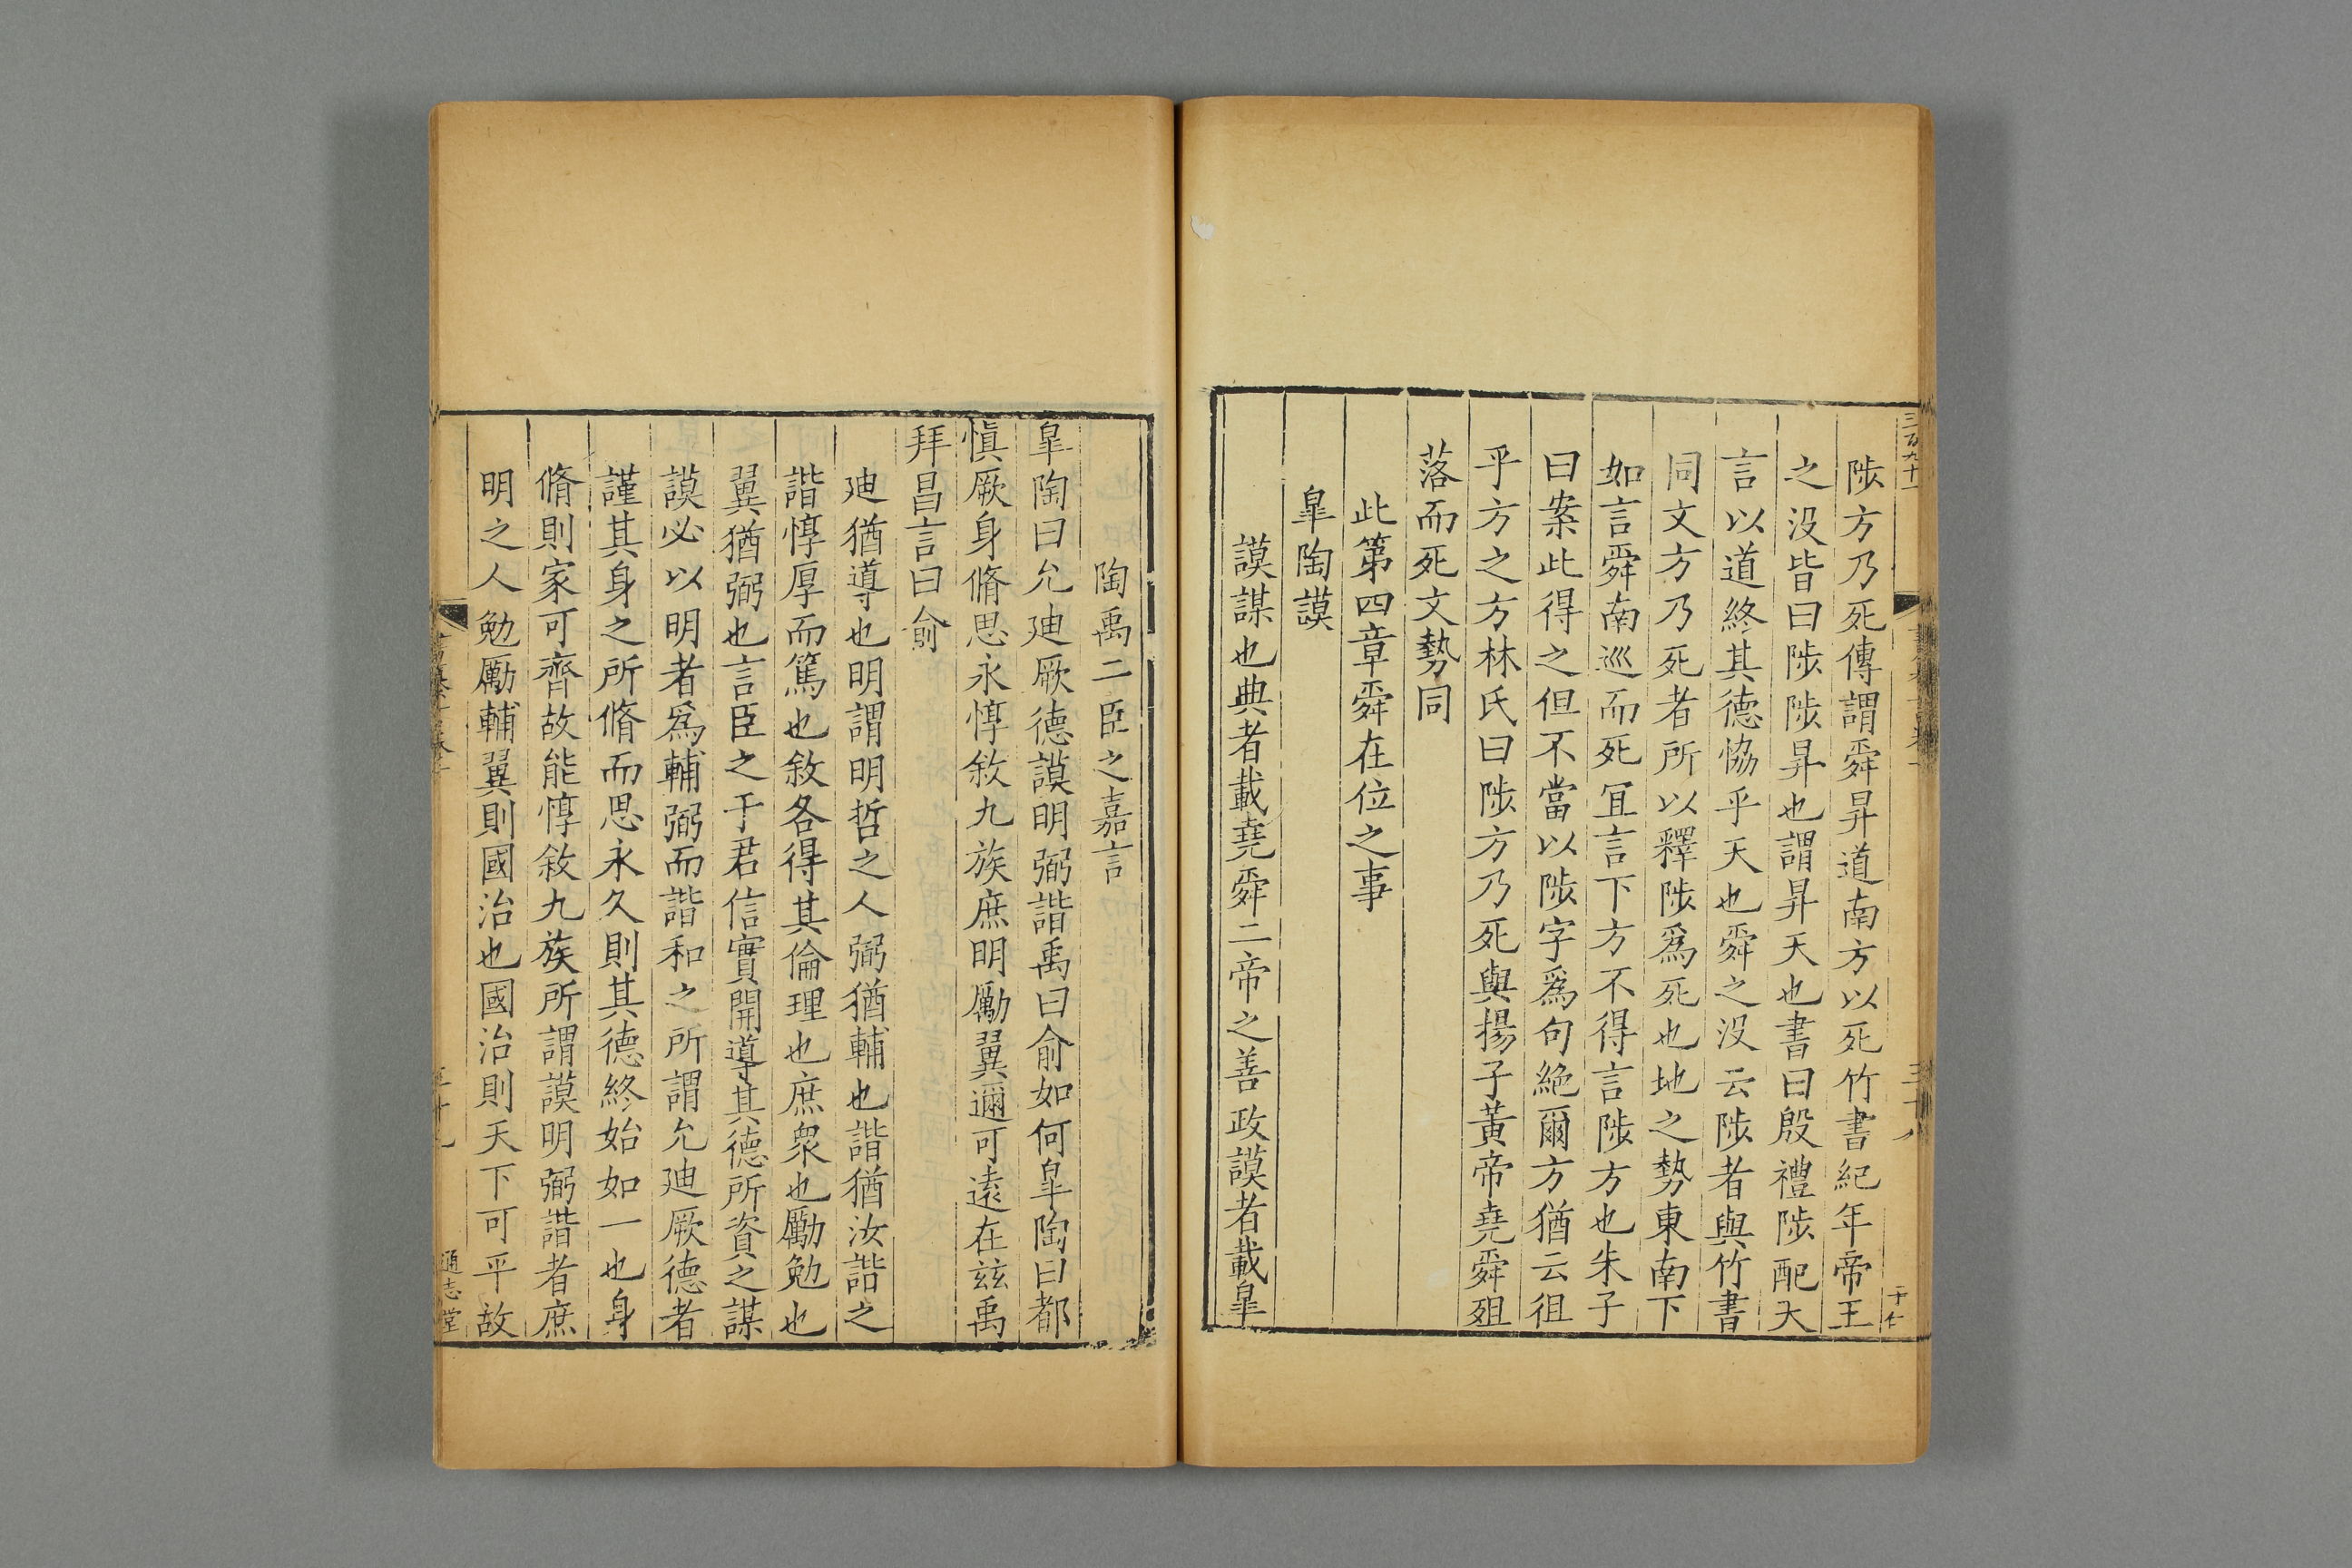 三百九十一
三十八
陟方乃死傳謂舜昇道南方以死竹書紀年帝王
之没皆曰陟陟昇也謂昇天也書曰殷禮陟配天
言以道終其德恊乎天也舜之没云陟者與竹書
同文方乃死者所以釋陟爲死也地之勢東南下
如言舜南巡而死宜言下方不得言陟方也朱子
曰案此得之但不當以陟字爲句絶爾方猶云徂
乎方之方林氏曰陟方乃死與揚子黃帝堯舜殂
落而死文勢同
此第四章舜在位之事
臯陶謨
謨謀也典者載堯舜二帝之善政謨者載臯
陶禹二臣之嘉言
臯陶曰允廸厥德謨明弼諧禹曰俞如何臯陶曰都
愼厥身脩思永惇敘九族庶明勵翼邇可遠在兹禹
拜昌言曰俞
廸猶導也明謂明哲之人弼猶輔也諧猶汝諧之
諧惇厚而篤也敘各得其倫理也庶衆也勵勉也
翼猶弼也言臣之于君信實開導其德所資之謀
謨必以明者爲輔弼而諧和之所謂允廸厥德者
謹其身之所脩而思永久則其德終始如一也身
脩則家可齊故能惇敘九族所謂謨明弼諧者庶
明之人勉勵輔翼則國治也國治則天下可平故
通志堂